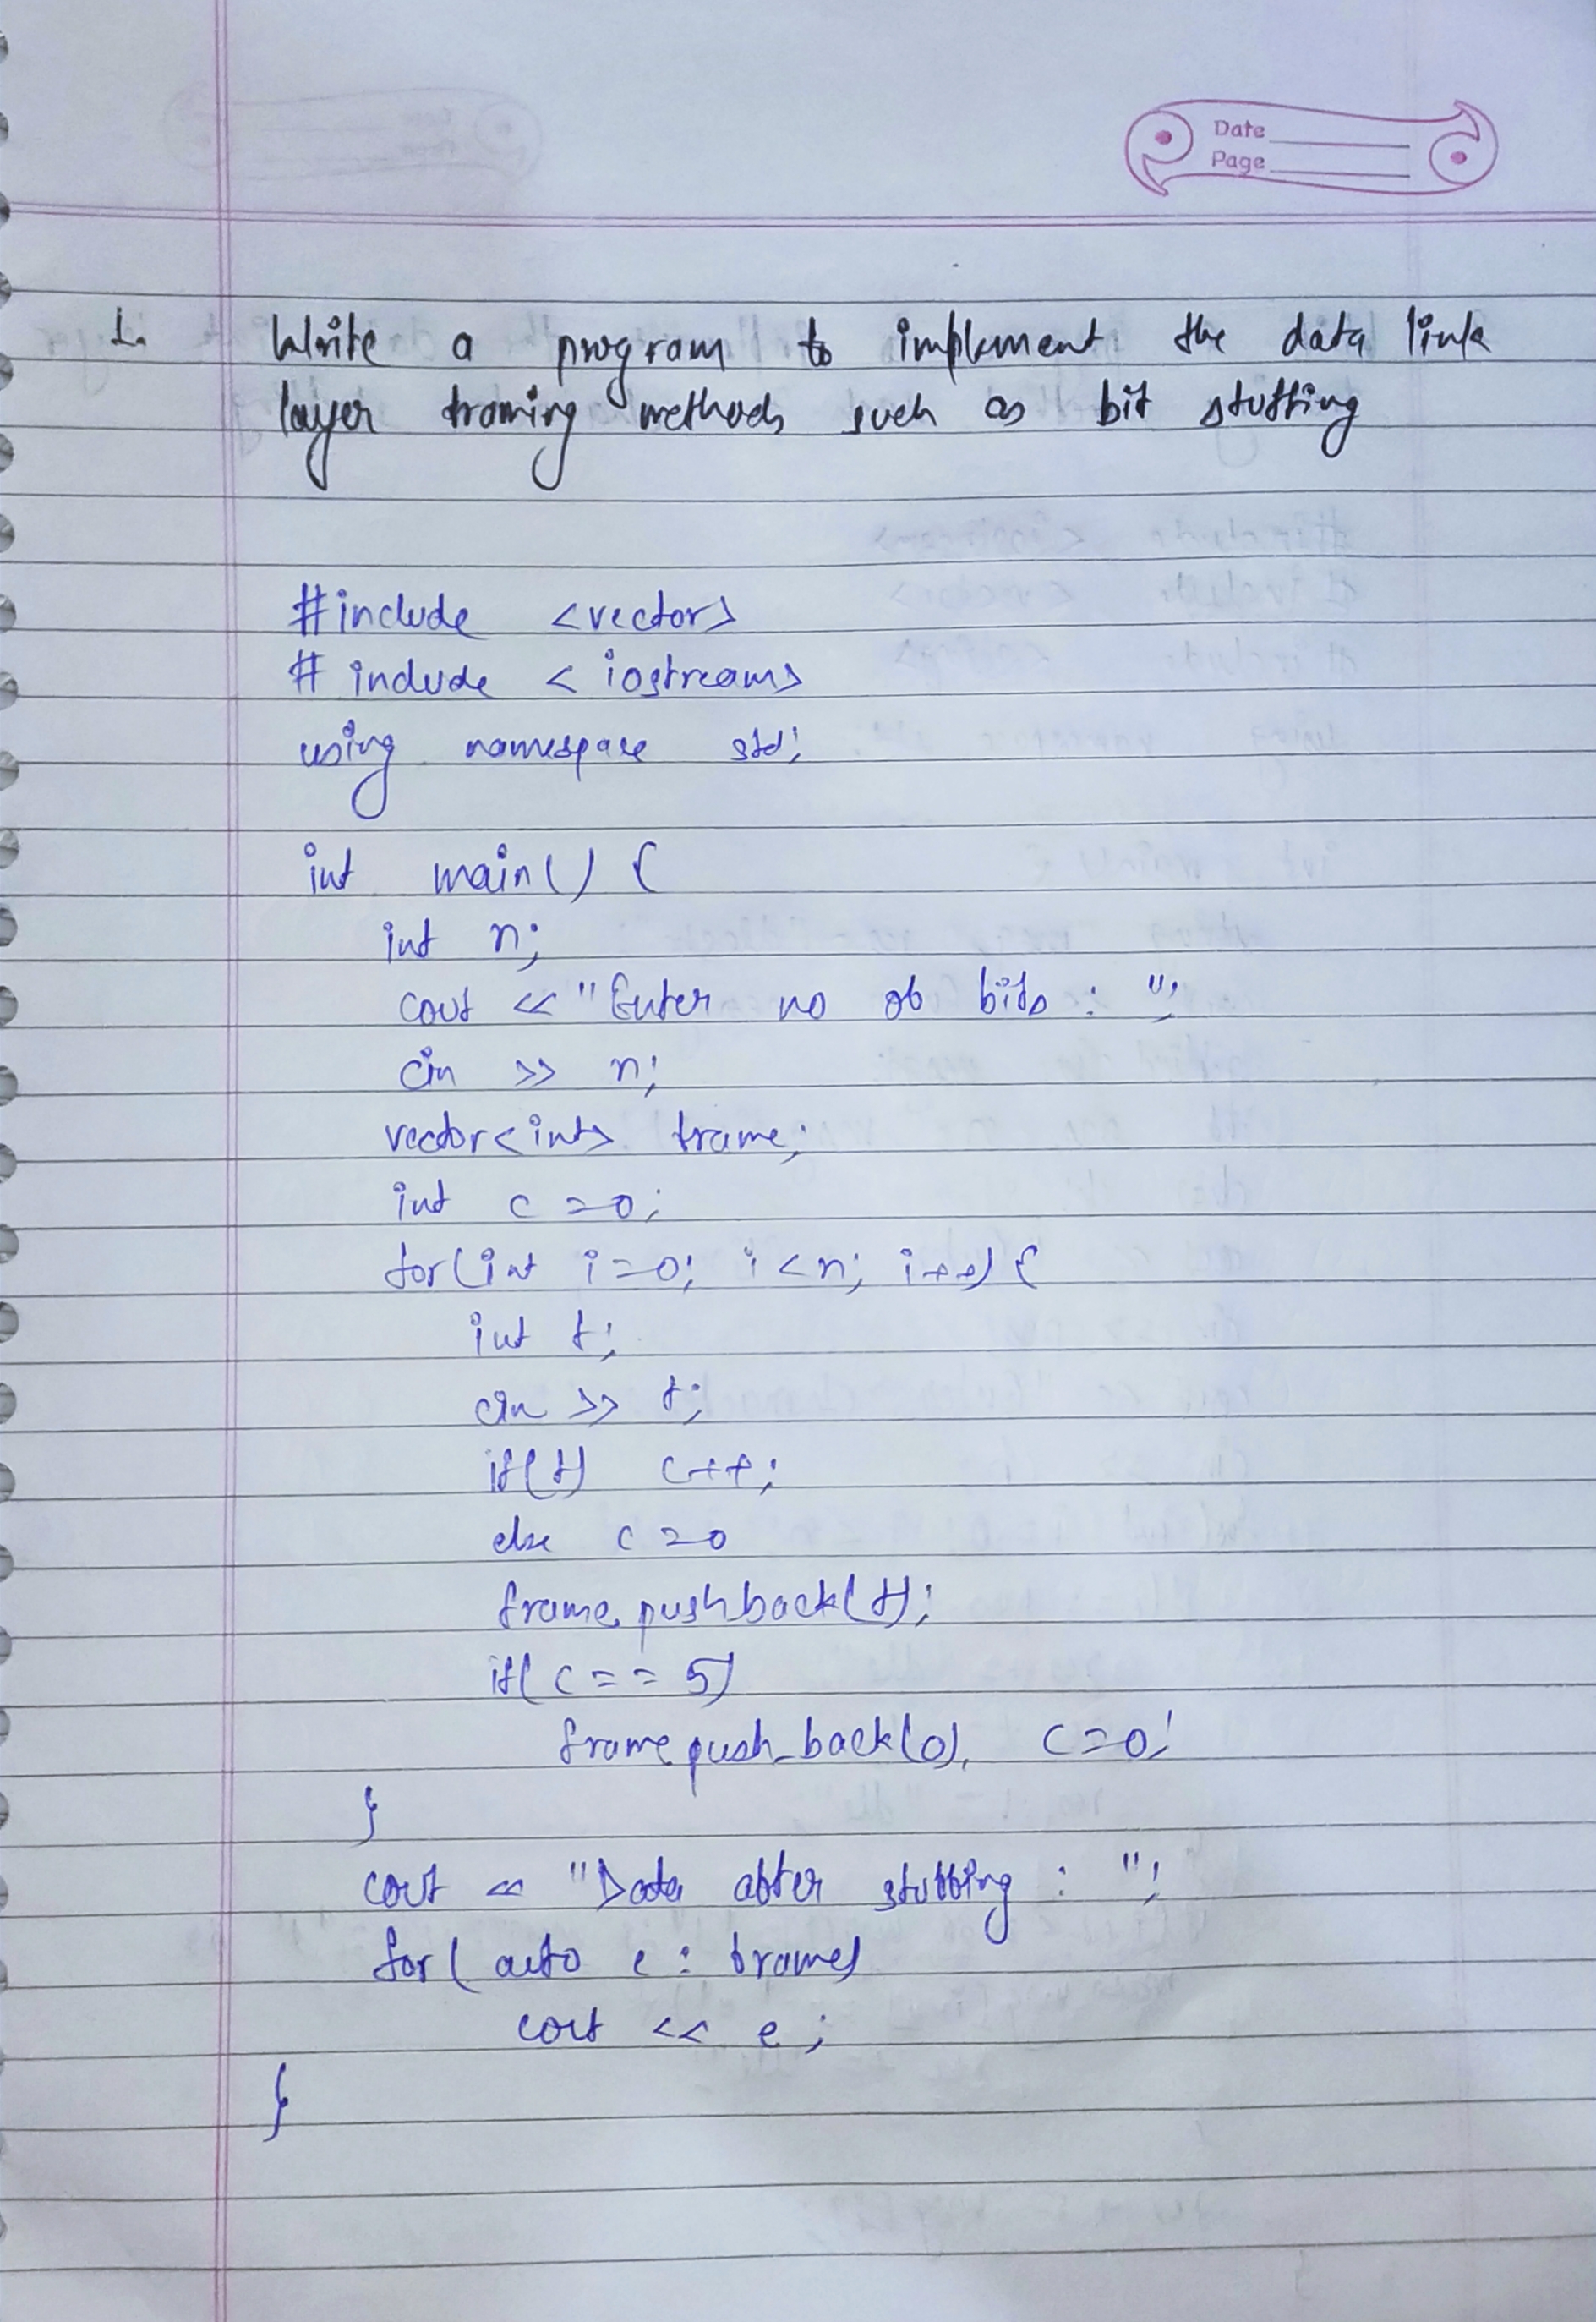 Date
Page
1. Write a program to implement the data link
layer framing methods such as bit stuffing
#include <vector>
# include < iostream>
using namespace std;
int main() {
int n;
cout << "Enter no of bits : ";
cin >> n;
vector<int> frame;
int c = 0;
for(int i=0; i<n; i++) {
int t;
cin >> t;
if(t) c++;
else c = 0
frame.pushback(t);
if( c == 5)
frame push_back(0), c=0;
}
cout << "Data after stuffing : ";
for( auto e : frame)
cout << e ;
}